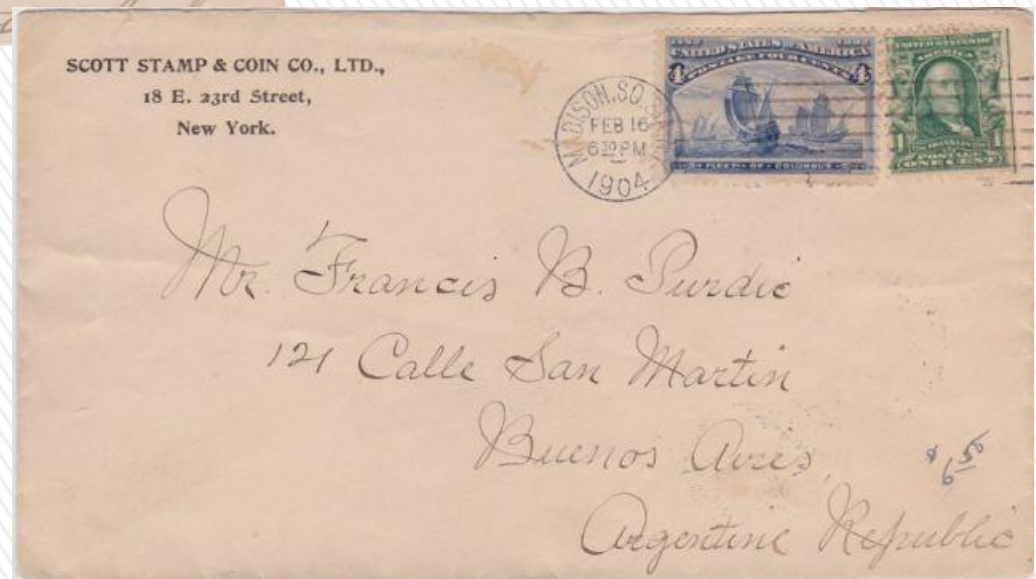 SCOTT STAMP & COIN CO., LTD.,
18 E. 23rd Street,
New York.
MADISON.SQ.
FEB 16
6 30 PM
1904
UNITED STATES OF AMERICA
POSTAGE FOUR CENTS
4 4
FLEET OF COLUMBUS
1 1
POSTAGE
ONE CENT
Mr. Francis B. Purdie
121 Calle San Martin
Buenos Aires,
Argentine Republic